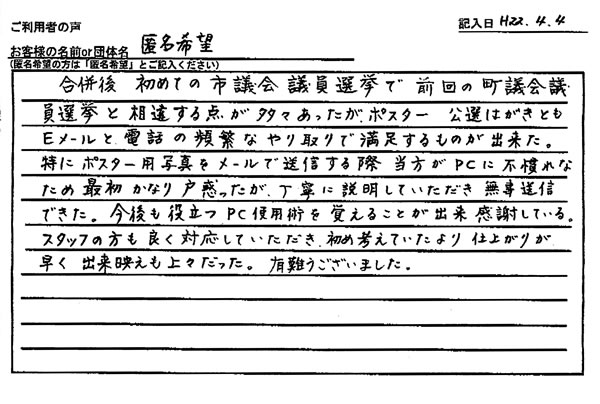 ご利用者の声
記入日 H22.4.4
お客様の名前or団体名 匿名希望
(匿名希望の方は「匿名希望」とご記入ください)
合併後 初めての市議会議員選挙で前回の町議会議
員選挙と相違する点が多々あったが、ポスター 公選はがきとも
Eメールと電話の頻繁なやり取りで満足するものが出来た。
特にポスター用写真をメールで送信する際 当方がPCに不慣れな
ため最初かなり戸惑ったが、丁寧に説明していただき無事送信
できた。今後も役立つPC使用術を覚えることが出来感謝している。
スタッフの方も良く対応していただき、初め考えていたより仕上がりが
早く出来映えも上々だった。有難うございました。